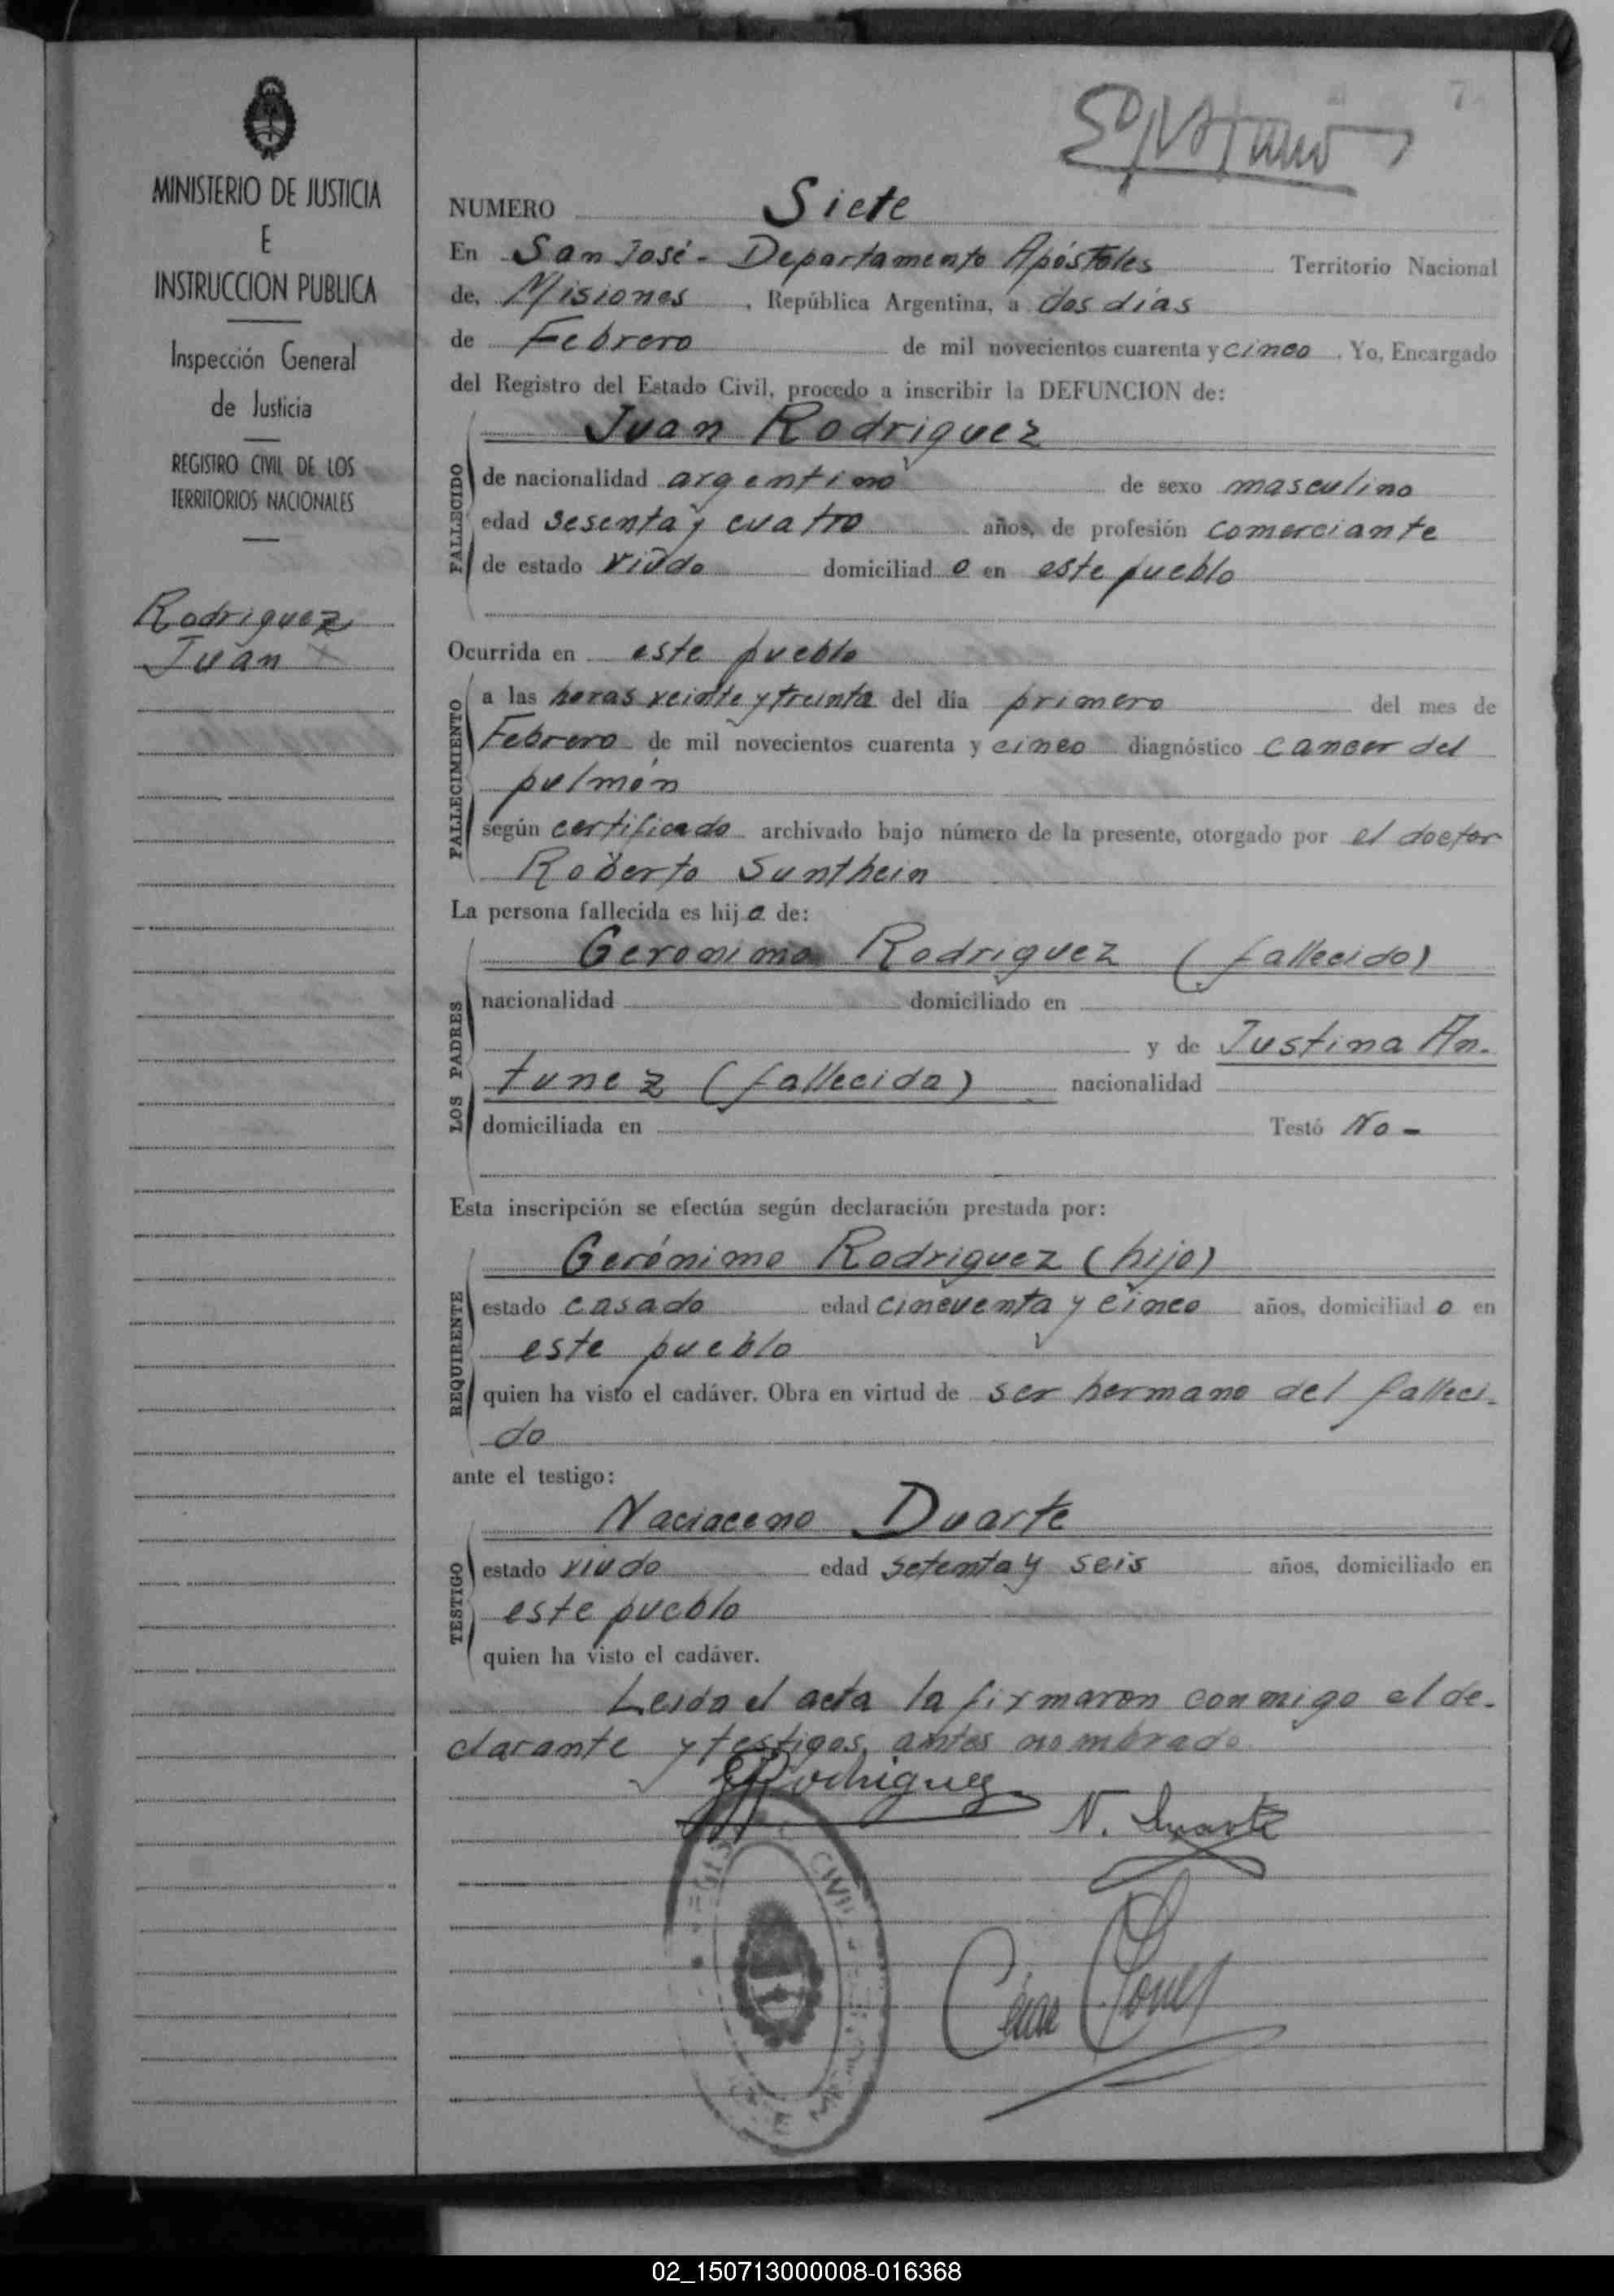 7
MINISTERIO DE JUSTICIA
E
INSTRUCCION PUBLICA
Inspección General
de Justicia
REGISTRO CIVIL DE LOS
TERRITORIOS NACIONALES
Rodriguez
Juan
NUMERO Siete
En San José - Departamento Apóstoles Territorio Nacional
de, Misiones, República Argentina, a dos días
de Febrero de mil novecientos cuarenta y cinco. Yo, Encargado
del Registro del Estado Civil, procedo a inscribir la DEFUNCION de:
Juan Rodriguez
FALLECIDO
de nacionalidad argentino de sexo masculino
edad sesenta y cuatro años, de profesión comerciante
de estado viudo domiciliado en este pueblo
Ocurrida en este pueblo
FALLECIMIENTO
a las horas veinte y treinta del día primero del mes de
Febrero de mil novecientos cuarenta y cinco diagnóstico cancer del
pulmón
según certificado archivado bajo número de la presente, otorgado por el doctor
Roberto Sunthein
La persona fallecida es hijo de:
LOS PADRES
Geronimo Rodriguez (fallecido)
nacionalidad domiciliado en
y de Justina An-
tunez (fallecida) nacionalidad
domiciliada en Testó No -
Esta inscripción se efectúa según declaración prestada por:
REQUIRENTE
Gerónimo Rodriguez (hijo)
estado casado edad cincuenta y cinco años, domiciliado en
este pueblo
quien ha visto el cadáver. Obra en virtud de ser hermano del falleci-
do
ante el testigo:
TESTIGO
Naciaceno Duarte
estado viudo edad setenta y seis años, domiciliado en
este pueblo
quien ha visto el cadáver.
Leída el acta la firmaron conmigo el de-
clarante y testigos, antes nombrado
GRodriguez
N. Duarte
CIVIL
02_150713000008-016368